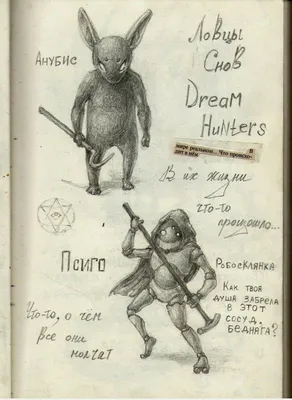 Ловцы
Снов
Анубис
Dream
Hunters
мире реальном... Что происхо- В
дит в нём
В их жизни
что-то
произошло...
Псиго
Робосклянка
Как твоя
душа забрела
в этот
сосуд,
бедняга?
Что-то, о чём
все они
молчат